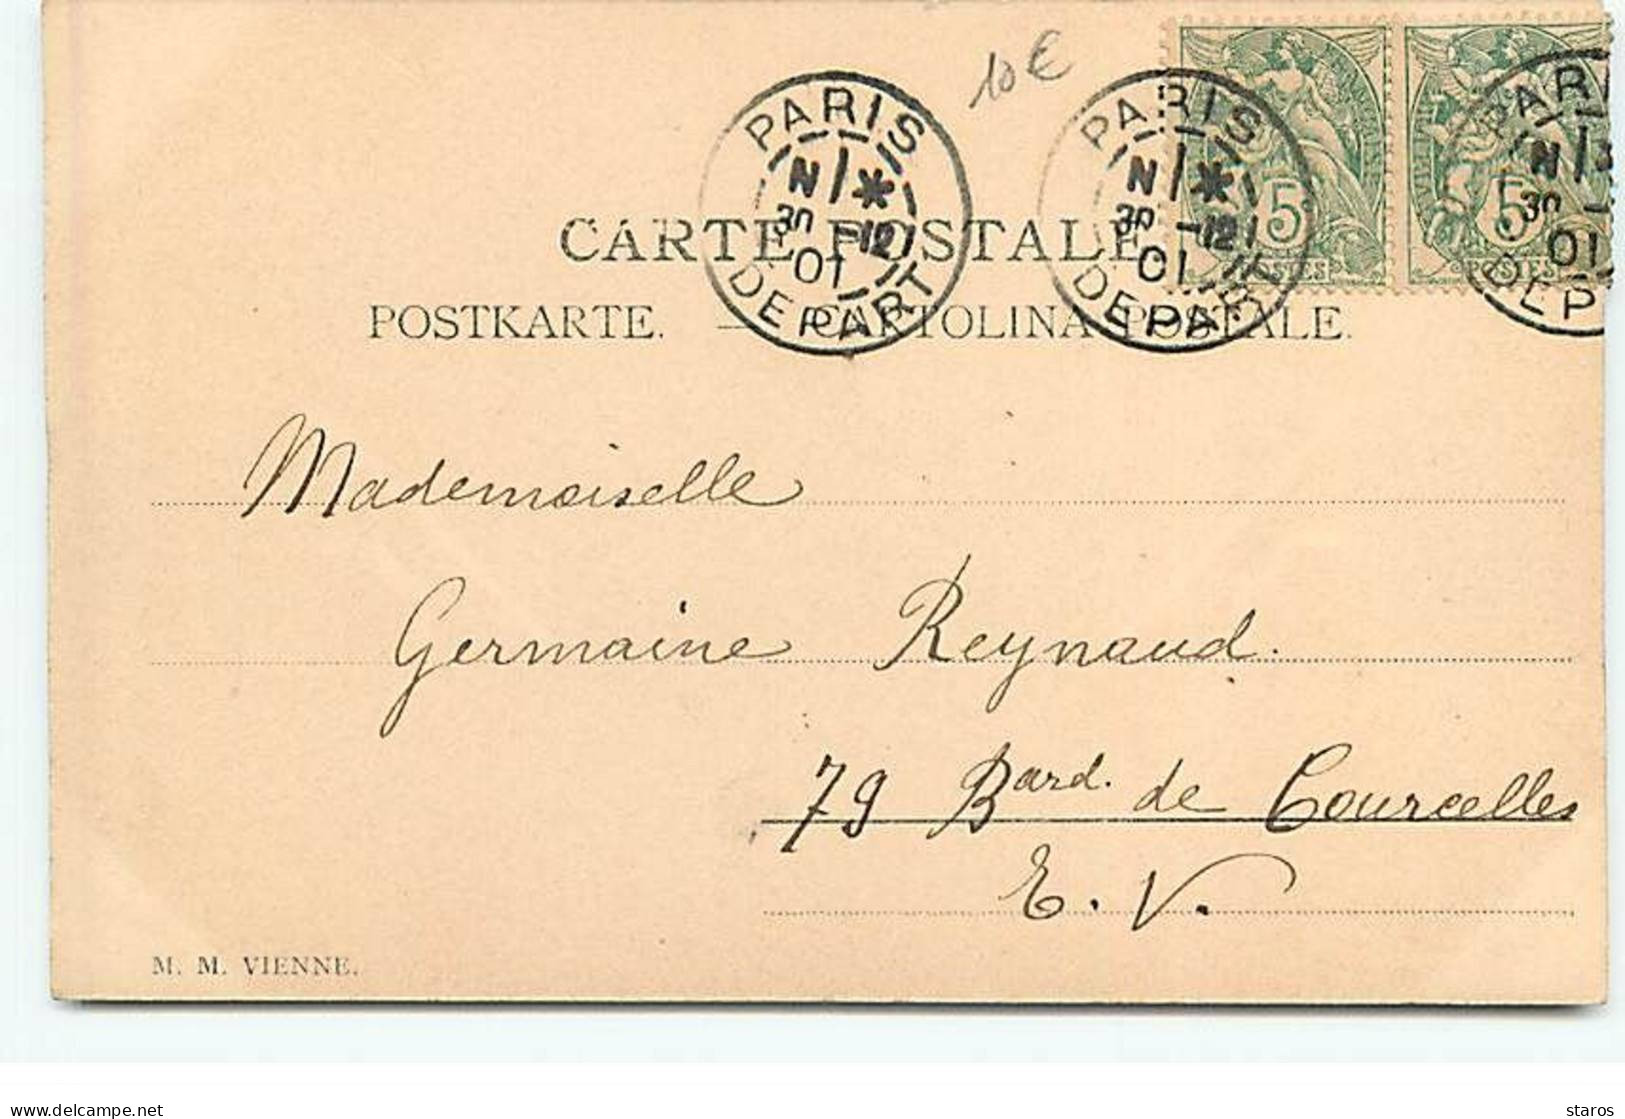 10 €
PARIS
N *
30 -12
01
DEPART
PARIS
N *
30 -12
01
DEPART
PARIS
N
30 -
01
DEP
5
POSTES
5
POSTES
CARTE POSTALE
POSTKARTE. — CARTOLINA POSTALE.
Mademoiselle
Germaine Reynaud.
79 Bard. de Courcelles
E. V.
M. M. VIENNE.
delcampe.net
staros